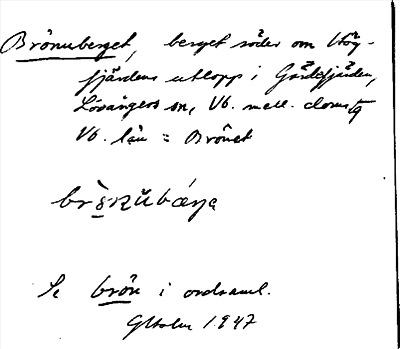 Brönnberget, berget söder om Hög-
fjärdens utlopp i Gärdefjärden,
Lövångers sn, Vb. mell. doms
Vb. län = Brönet
Se brön i ordsaml.
GHolm 1947